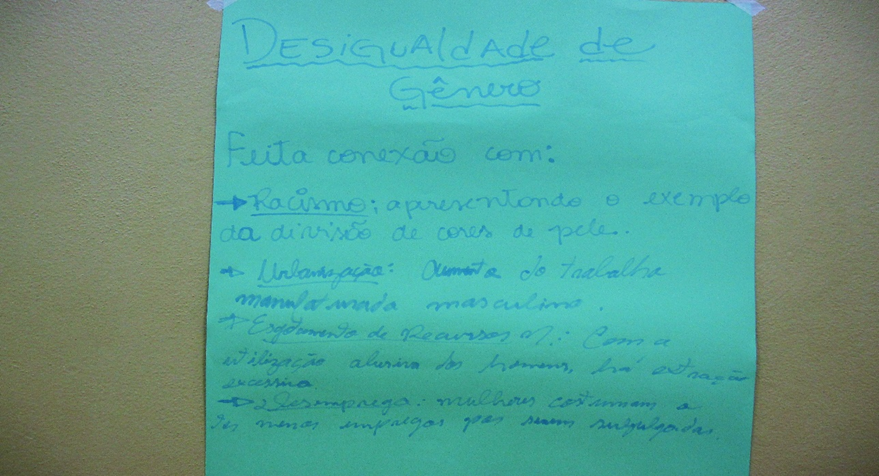 Desigualdade de
Gênero
Feita conexão com:
→ Racismo: apresentando o exemplo
da divisão de cores de pele.
→ Urbanização: Aumento do trabalho
manufaturado masculino.
→ Esgotamento de Recursos N.: Com a
utilização abusiva dos homens, há extração
excessiva.
→ Desemprego: mulheres costumam a
ter menos empregos por serem